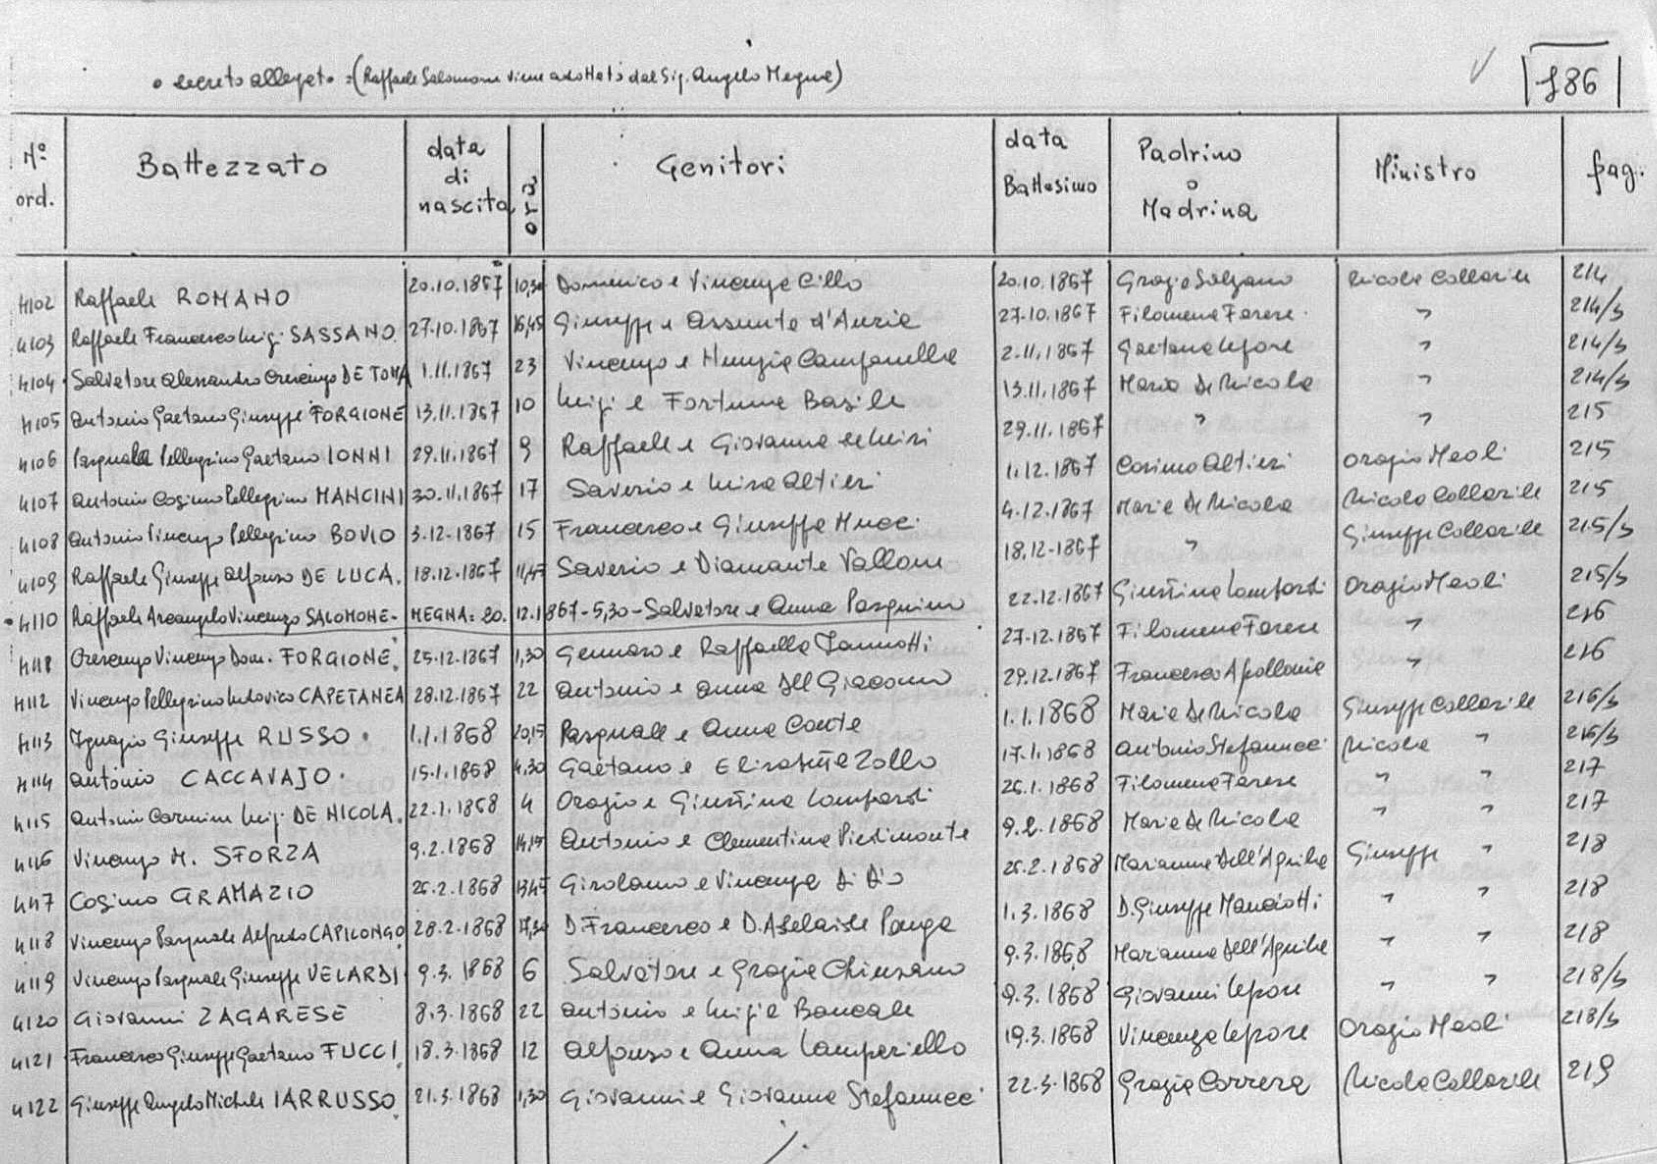 • decreto allegato: (Raffaele Salomone viene adottato dal Sig. Angelo Megna)
186
N° ord. Battezzato data di nascita ora Genitori data Battesimo Padrino o Madrina Ministro pag.
4102 Raffaele ROMANO 20.10.1867 10,30 Domenico e Vincenza Cillo 20.10.1867 Grazia Salzano Nicola Collarile 214
4103 Raffaele Francesco Luigi SASSANO 27.10.1867 16,45 Giuseppe e Assunta d'Auria 27.10.1867 Filomena Farese " 214/b
4104 Salvatore Alessandro Crescenzo DE TOMA 1.11.1867 23 Vincenzo e Nunzia Campanella 2.11.1867 Gaetana Lepore " 214/b
4105 Antonio Gaetano Giuseppe FORGIONE 13.11.1867 10 Luigi e Fortuna Basile 13.11.1867 Maria De Nicola " 214/b
4106 Pasquale Pellegrino Gaetano IONNI 29.11.1867 9 Raffaele e Giovanna 29.11.1867 " " 215
4107 Antonio Cosimo Pellegrino MANCINI 30.11.1867 17 Saverio e Luisa Altieri 1.12.1867 Cosimo Altieri Orazio Meoli 215
4108 Antonio Vincenzo Pellegrino BOVIO 3.12.1867 15 Francesco e Giuseppa Mucci 4.12.1867 Maria De Nicola Nicola Collarile 215
4109 Raffaele Giuseppe Alfonso DE LUCA. 18.12.1867 11,45 Saverio e Diamante Vallone 18.12.1867 " Giuseppe Collarile 215/b
• 4110 Raffaele Arcangelo Vincenzo SALOMONE - MEGNA: 20.12.1867 - 5,30 - Salvatore e Anna Pasquino 22.12.1867 Giustina Lombardi Orazio Meoli 215/b
4111 Crescenzo Vincenzo Dom. FORGIONE. 25.12.1867 1,30 Gennaro e Raffaella Iannotti 27.12.1867 Filomena Farese " 216
4112 Vincenzo Pellegrino Ludovico CAPETANEA 28.12.1867 22 Antonio e Anna Dell Giacomo 29.12.1867 Francesco Apollonia " 216
4113 Ignazio Giuseppe RUSSO. 1.1.1868 20,15 Pasquale e Anna Conte 1.1.1868 Maria De Nicola Giuseppe Collarile 216/b
4114 Antonio CACCAVAJO. 15.1.1868 4,30 Gaetano e Elisabetta Zollo 17.1.1868 Antonio Stefanucci Nicola " 216/b
4115 Antonio Carmine Luigi DE NICOLA. 22.1.1868 4 Orazio e Giustina Lombardi 26.1.1868 Filomena Farese " " 217
4116 Vincenzo M. SFORZA 9.2.1868 14,15 Antonio e Clementina Piedimonte 9.2.1868 Maria De Nicola " " 217
4117 Cosimo GRAMAZIO 26.2.1868 13,45 Girolamo e Vincenza Di Dio 26.2.1868 Marianna Dell'Aprile Giuseppe " 218
4118 Vincenzo Pasquale Alfredo CAPILONGO 28.2.1868 17,30 D. Francesco e D. Adelaide Panga 1.3.1868 D. Giuseppe Manciotti " " 218
4119 Vincenzo Pasquale Giuseppe VELARDI 9.3.1868 6 Salvatore e Grazia Chiusano 9.3.1868 Marianna Dell'Aprile " " 218
4120 Giovanni ZAGARESE 8.3.1868 22 Antonio e Luigia Boncale 9.3.1868 Giovanni Lepore " " 218/b
4121 Francesco Giuseppe Gaetano FUCCI 18.3.1868 12 Alfonso e Anna Lamperiello 19.3.1868 Vincenza Lepore Orazio Meoli 218/b
4122 Giuseppe Angelo Michele IARRUSSO. 21.3.1868 1,30 Giovanni e Giovanna Stefanucci 22.3.1868 Grazia Correra Nicola Collarile 219